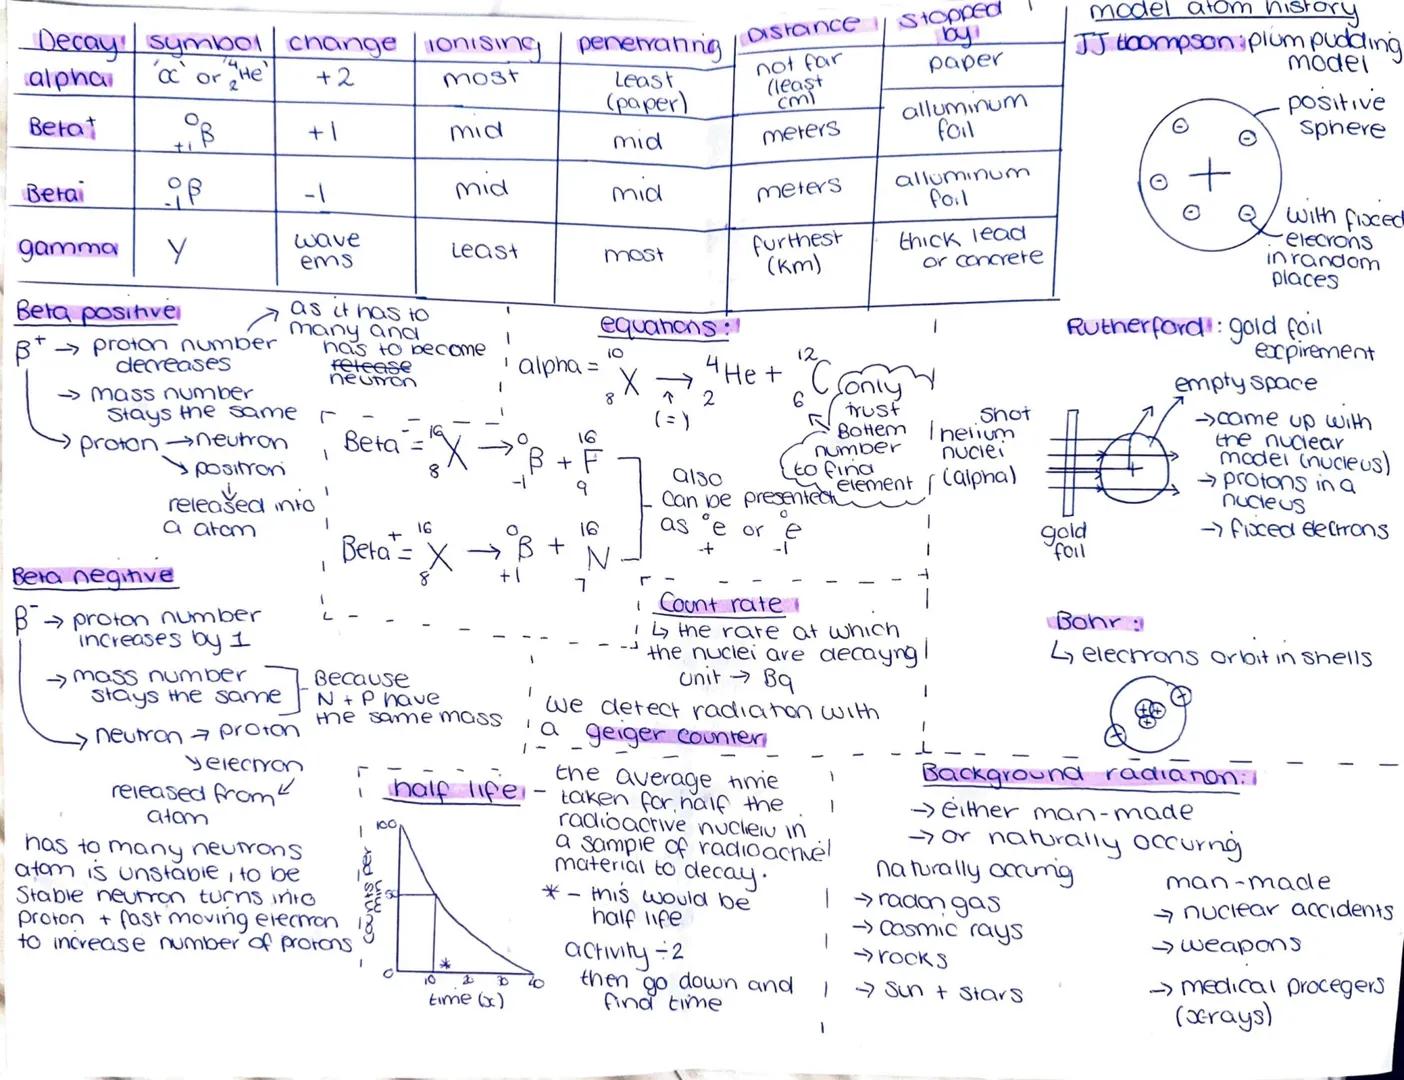 Decay symbol change ionising penetrating Distance stopped by
alpha 'α' or ⁴₂He +2 most Least (paper) not far (least cm) paper
Beta⁺ ⁰₊₁β +1 mid mid meters alluminum foil
Beta⁻ ⁰₋₁β -1 mid mid meters alluminum foil
gamma γ wave ems Least most furthest (Km) thick lead or concrete
model atom history
JJ thompson: plum pudding
model
positive
sphere
with fixed
elecrons
in random
places
Beta positive
β⁺ → proton number
decreases
as it has to
many and
has to become
release
neutron
→ mass number
stays the same
→ proton → neutron
positron
released into
a atom
equations:
alpha = ¹⁰₈X → ⁴₂He + ¹²₆C
(=)
only
trust
Bottem
number
to find
element
Beta⁻ = ¹⁶₈X → ⁰₋₁β + ¹⁶₉F
Beta⁺ = ¹⁶₈X → ⁰₊₁β + ¹⁶₇N
also
can be presented
as ⁰₊e or ⁰₋₁e
Rutherford: gold foil
expirement
empty space
shot
helium
nuclei
(alpha)
gold
foil
→ came up with
the nuclear
model (nucleus)
→ protons in a
nucleus
→ fixed elecrons
Beta negitive
β⁻ → proton number
increases by 1
→ mass number
stays the same
Because
N + P have
the same mass
→ neutron → proton
electron
released from
atom
has to many neutrons
atom is unstable, to be
stable neutron turns into
proton + fast moving electron
to increase number of protons
Count rate
↳ the rate at which
the nuclei are decayng
unit → Bq
we detect radiation with
a geiger counter
Bohr:
↳ electrons orbit in shells
half life - the average time
taken for half the
radioactive nucleiu in
a sample of radioactivel
material to decay.
* - this would be
half life
activity ÷ 2
then go down and
find time
counts per
min
100
50
0
10 20 30 40
*
time (x)
Background radiation:
→ either man-made
→ or naturally occurng
naturally occuring
→ radon gas
→ cosmic rays
→ rocks
→ sun + stars
man-made
→ nuclear accidents
→ weapons
→ medical procegers
(xrays)